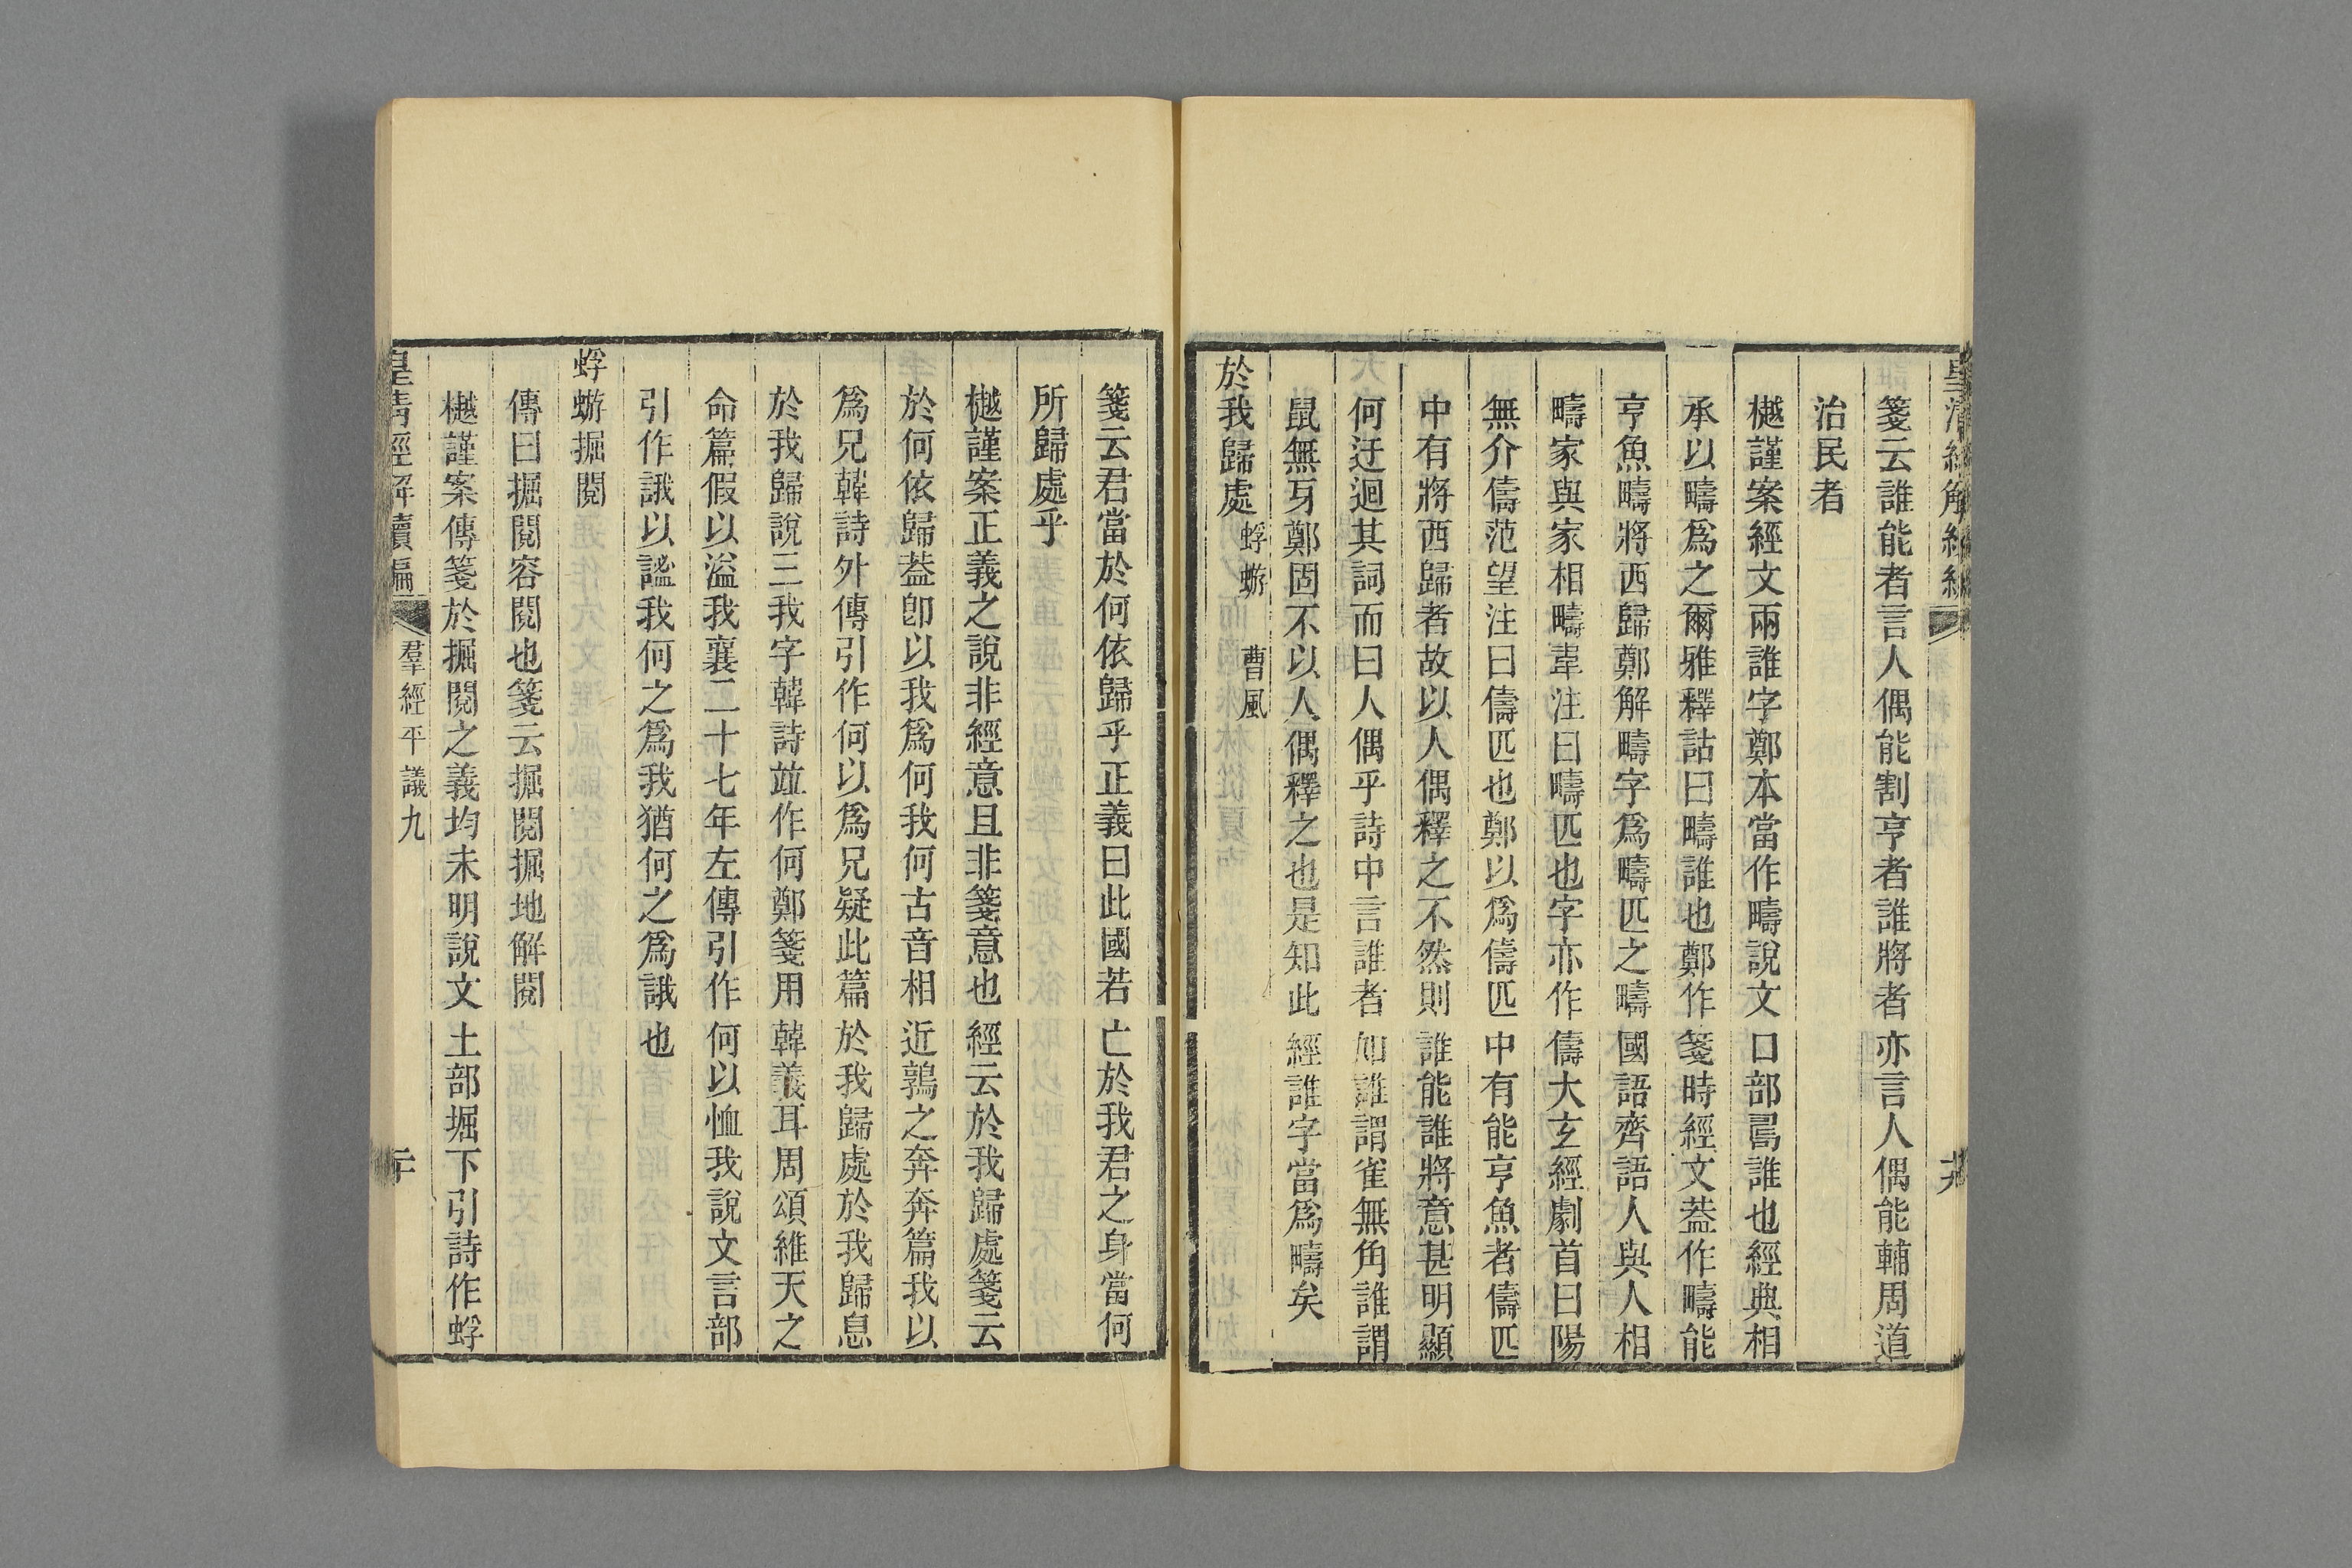 箋云誰能者言人偶能割亨者誰將者亦言人偶能輔周道
治民者
樾謹案經文兩誰字鄭本當作疇說文口部㖞誰也經典相
承以疇爲之爾雅釋詁曰疇誰也鄭作箋時經文葢作疇能
亨魚疇將西歸鄭解疇字爲疇匹之疇國語齊語人與人相
疇家與家相疇韋注曰疇匹也字亦作儔大玄經劇首曰陽
無介儔范望注曰儔匹也鄭以爲儔匹中有能亨魚者儔匹
中有將西歸者故以人偶釋之不然則誰能誰將意甚明顯
何迂迴其詞而曰人偶乎詩中言誰者如誰謂雀無角誰謂
鼠無牙鄭固不以人偶釋之也是知此經誰字當爲疇矣
於我歸處 蜉蝣 曹風
箋云君當於何依歸乎正義曰此國若亡於我君之身當何
所歸處乎
樾謹案正義之說非經意且非箋意也經云於我歸處箋云
於何依歸葢卽以我爲何我何古音相近鶉之奔奔篇我以
爲兄韓詩外傳引作何以爲兄疑此篇於我歸處於我歸息
於我歸說三我字韓詩竝作何鄭箋用韓義耳周頌維天之
命篇假以溢我襄二十七年左傳引作何以恤我說文言部
引作誐以謐我何之爲我猶何之爲誐也
蜉蝣掘閱
傳曰掘閱容閱也箋云掘閱掘地解閱
樾謹案傳箋於掘閱之義均未明說文土部堀下引詩作蜉
皇清經解續編 羣經平議九